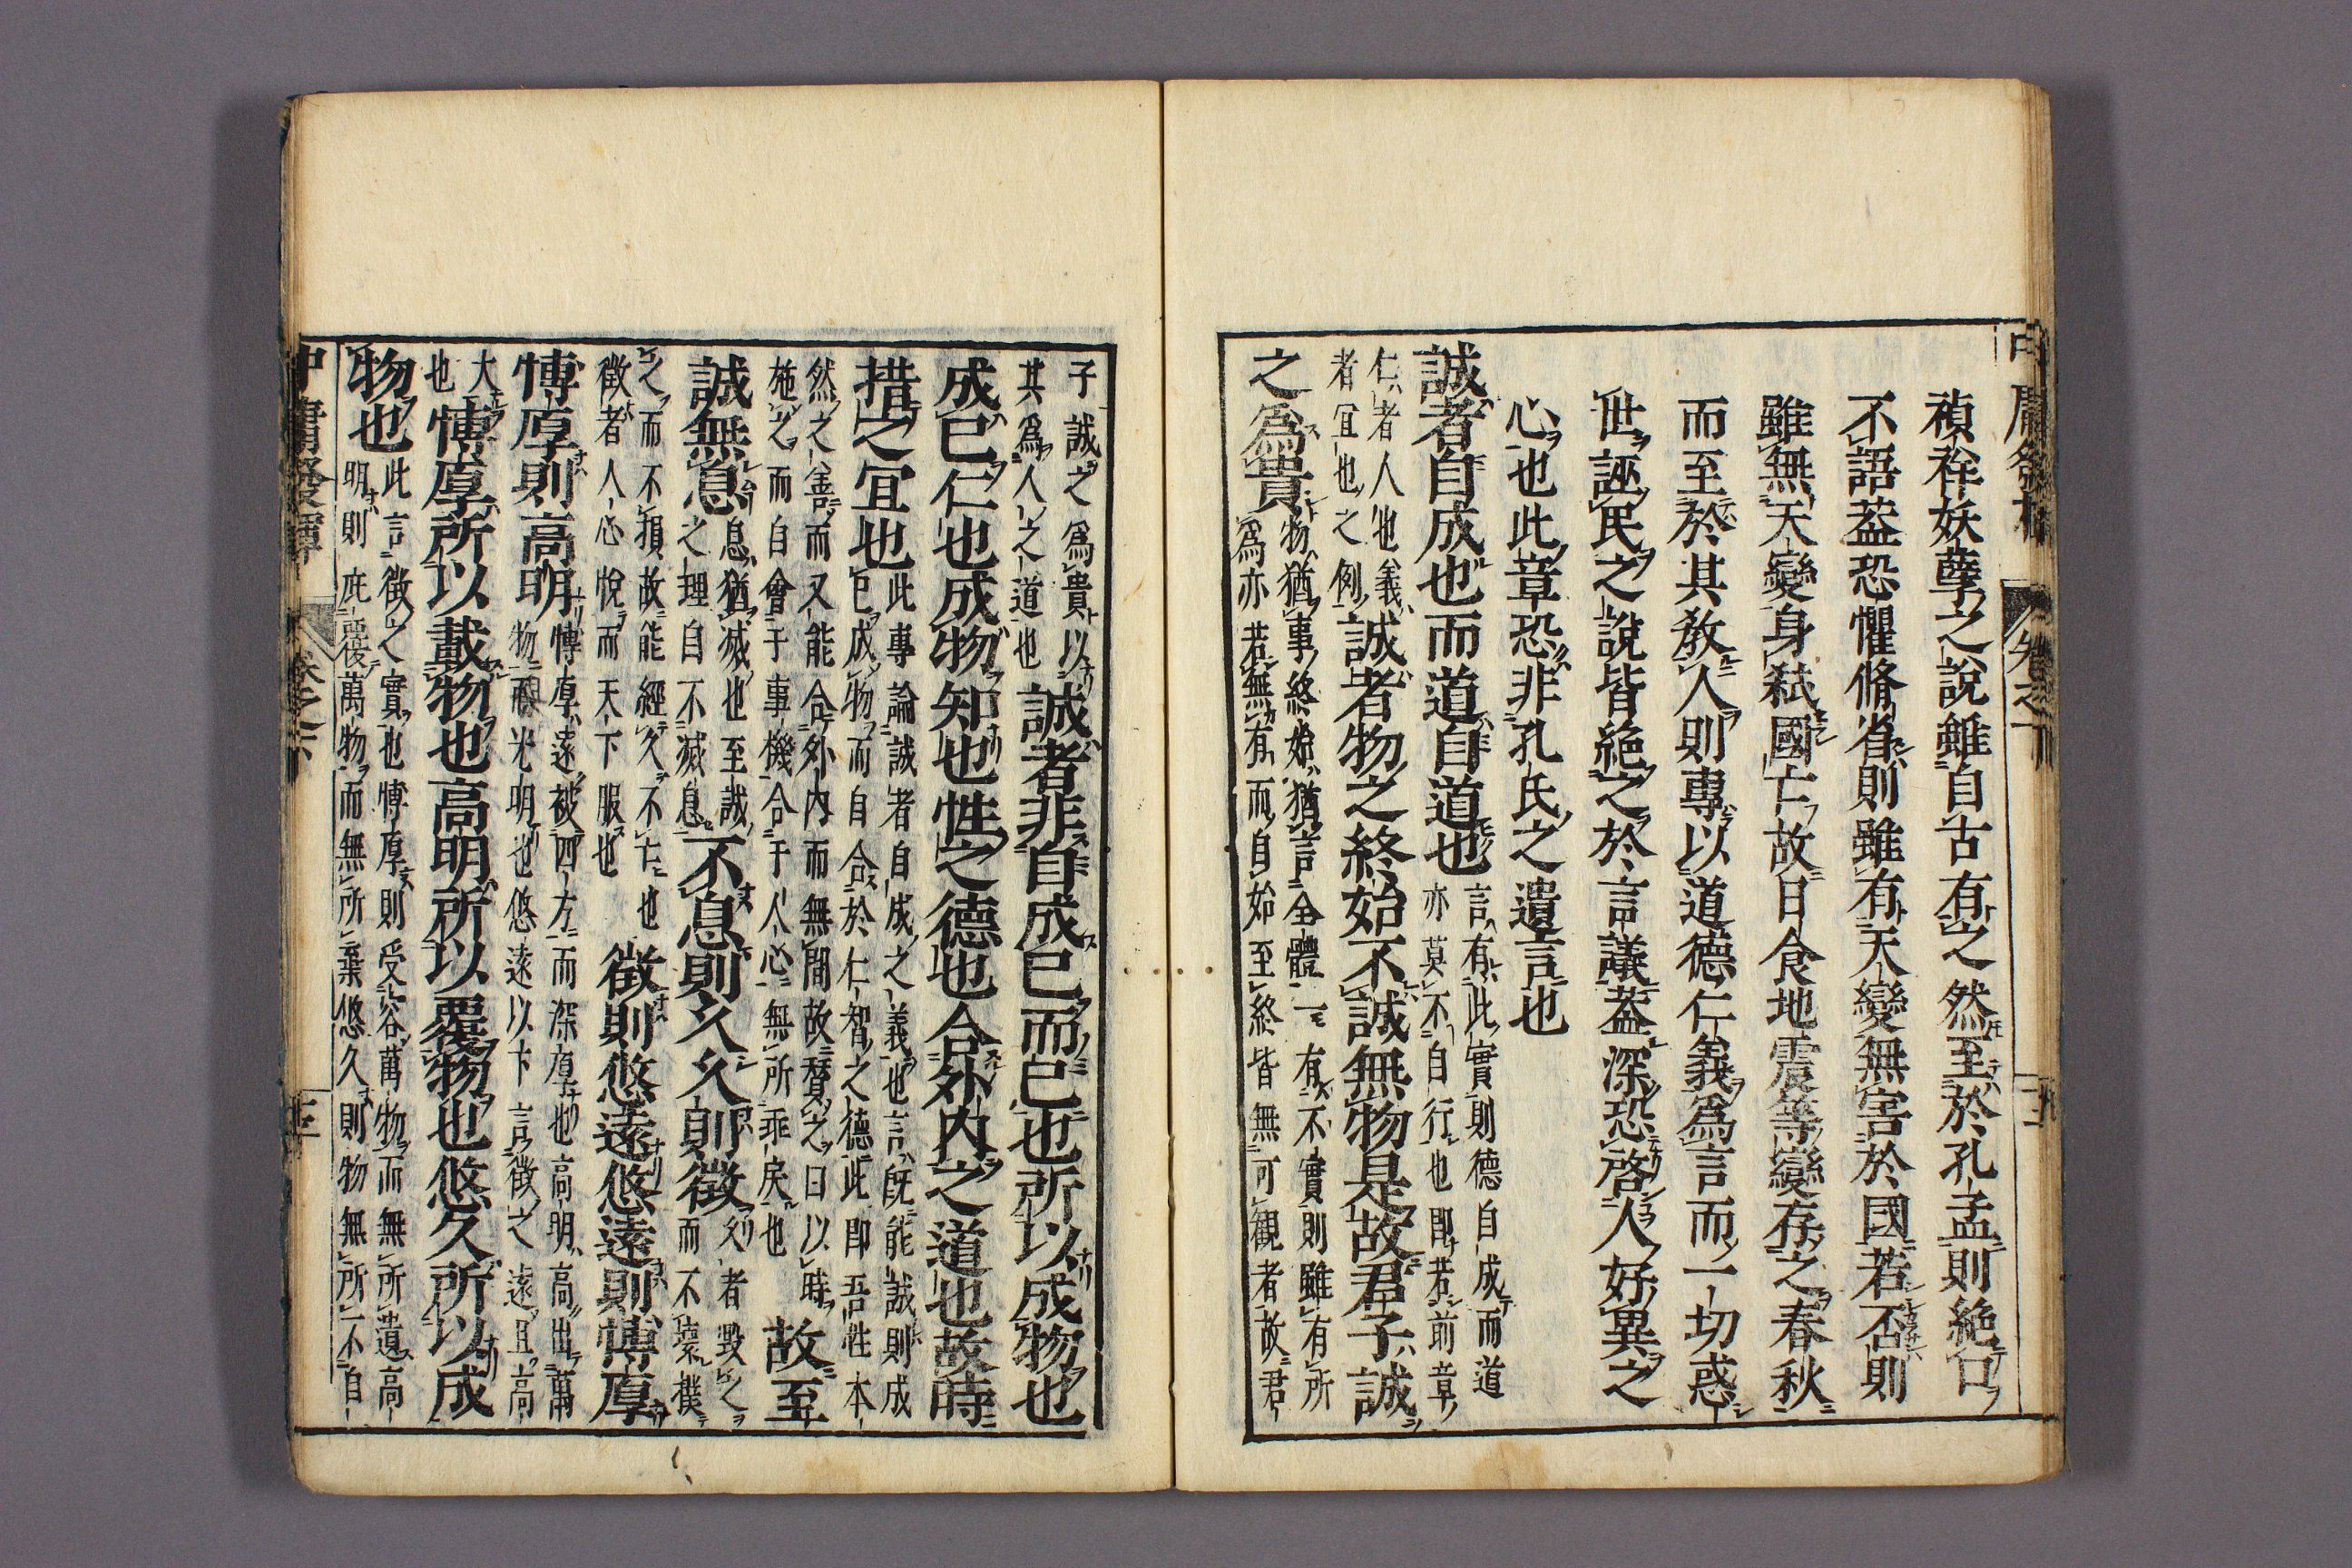 禎祥妖孽之說雖自古有之然至於孔孟則絶口
不語葢恐懼脩省則雖有天變無害於國若否則
雖無天變身弑國亡故日食地震等變存之春秋
而至於其教人則專以道德仁義為言而一切惑
世誣民之說皆絶之於言議葢深恐啓人好異之
心也此章恐非孔氏之遺言也
誠者自成也而道自道也
言有此實則德自成而道
亦莫不自行也即若前章
仁者人也義
者宜也之例
誠者物之終始不誠無物是故君子誠
之為貴
物猶事終始猶言全體一有不實則雖有所
為亦若無有而自始至終皆無可觀者故君
子誠之為貴以
其為人之道也
誠者非自成已而已也所以成物也
成已仁也成物知也性之德也合外内之道也故時
措之宜也
此專論誠者自成之義也言既能誠則成
已成物而自合於仁智之德此即吾性本
然之善而又能合外内而無間故賛之曰以時
施之而自會于事機合于人心無所乖戻也
故至
誠無息
息猶滅也至誠
之理自不滅息
不息則久久則徵
久者毀之
而不壞撲
之而不損故能經久不亡也
徵者人心悅而天下服也
徵則悠遠悠遠則博厚
博厚則高明
博厚遠被四方而深厚也高明高出萬
物而光明也悠遠以下言徵之遠且高
大
也
博厚所以載物也高明所以覆物也悠久所以成
物也
此言徵之實也博厚則受容萬物而無所遺高
明則庇覆萬物而無所棄悠久則物無所不自
中庸發揮 卷之下 十三